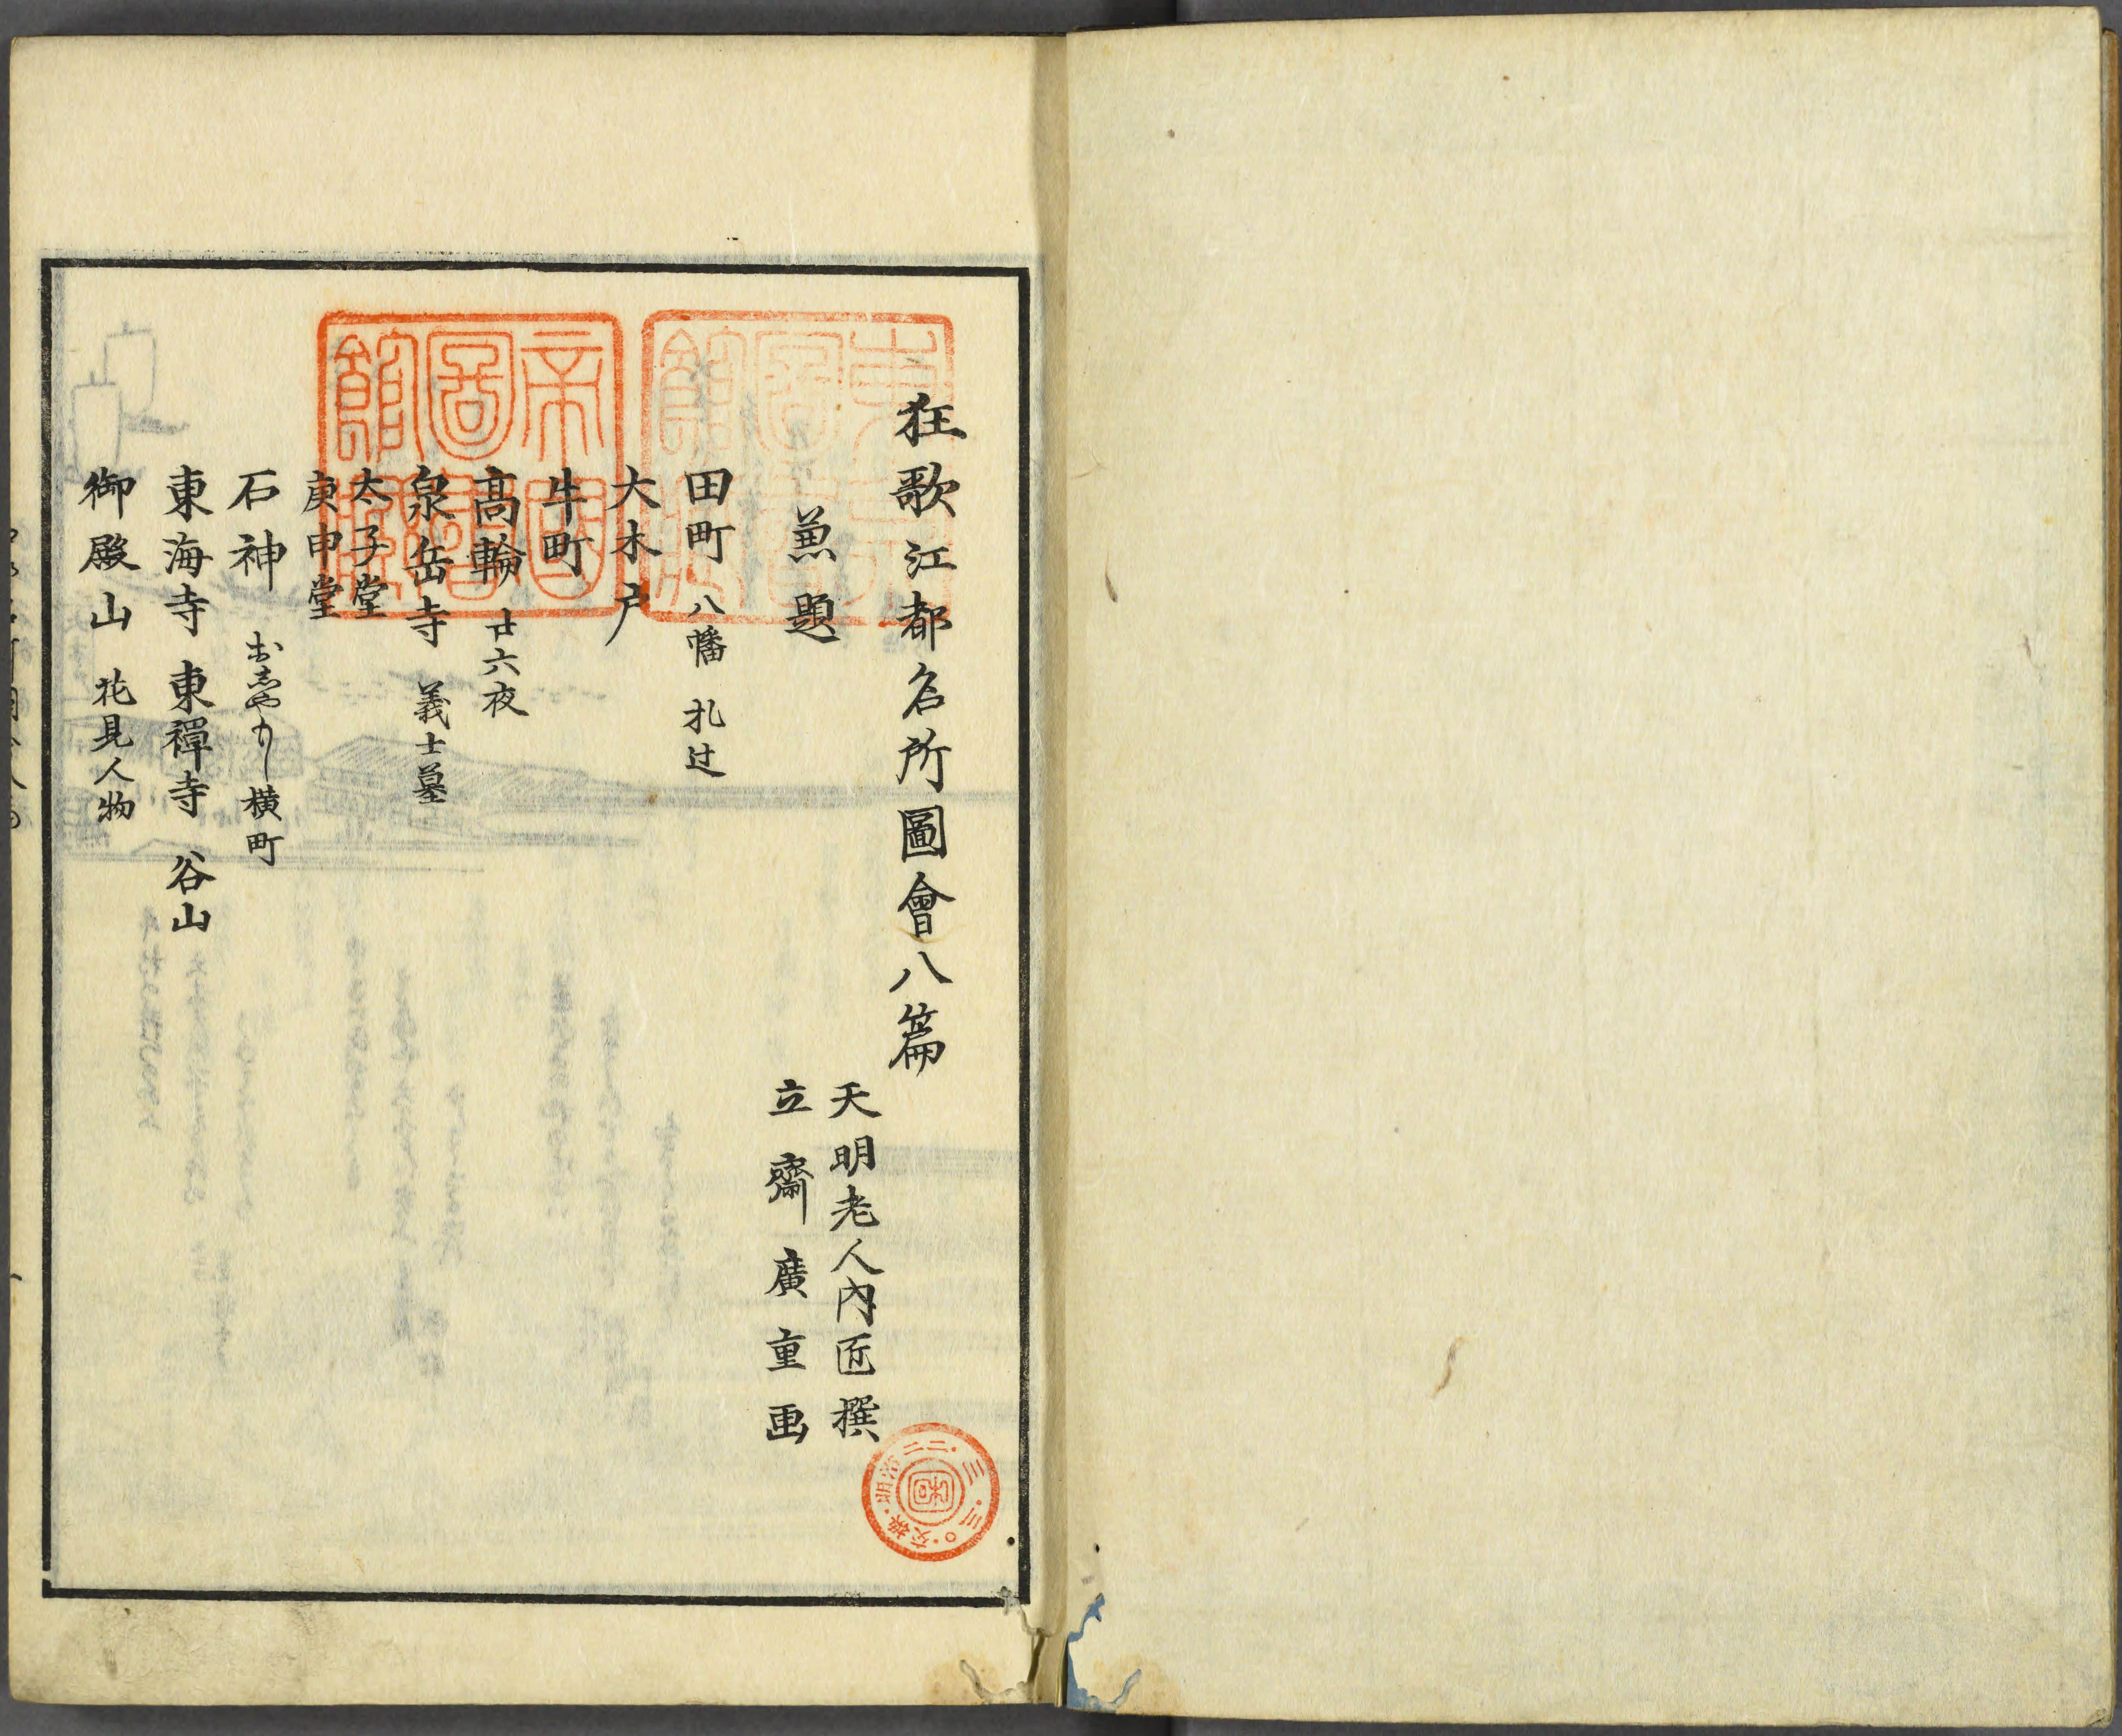 狂歌江都名所圖會八篇
天明老人內匠撰
立齋廣重画
兼題
田町 八幡 札辻
大木戸
牛町
高輪 廿六夜
泉岳寺 義士墓
太子堂
庚申堂
石神 おしやもし横町
東海寺 東禪寺 谷山
御殿山 花見人物
帝國圖書館藏
明治三二・三・三〇・交換